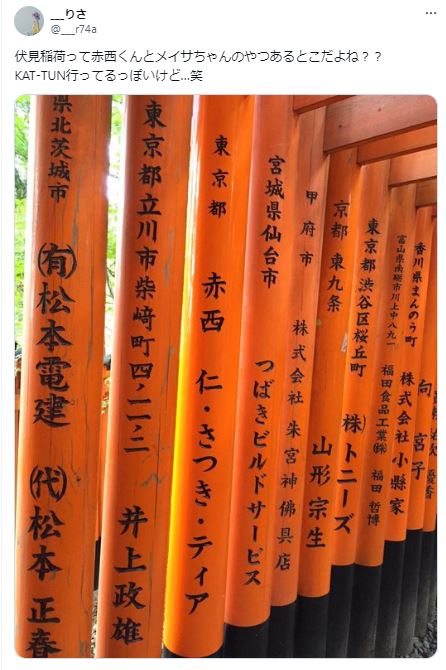 __りさ
@___r74a
伏見稲荷って赤西くんとメイサちゃんのやつあるとこだよね？？
KAT-TUN行ってるっぽいけど...笑
県北茨城市
(有)松本電建
(代)松本 正春
東京都立川市柴﨑町四ノ二ノ二
井上政雄
東京都
赤西 仁・さつき・ティア
宮城県仙台市
つばきビルドサービス
甲府市
株式会社 朱宮神佛具店
京都 東九条
山形宗生
東京都渋谷区桜丘町
(株)トニーズ
富山県南砺市川上中八九一
福田食品工業(株) 福田 哲博
香川県まんのう町
株式会社 小縣家
向 宮子